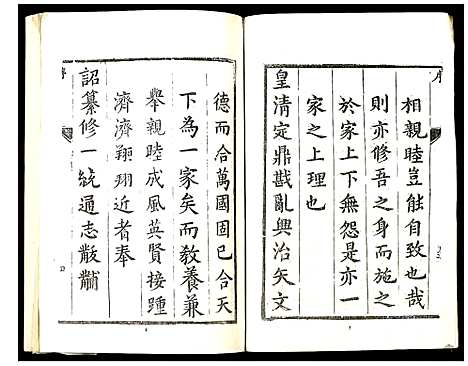 序
相親睦豈能自致也哉
則亦修吾之身而施之
於家上下無怨是亦一
家之上理也
皇清定鼎戡亂興治矢文
德而合萬國固已合天
下為一家矣而敎養兼
舉親睦成風英賢接踵
濟濟翔翔近者奉
詔纂修一統通志黻黼